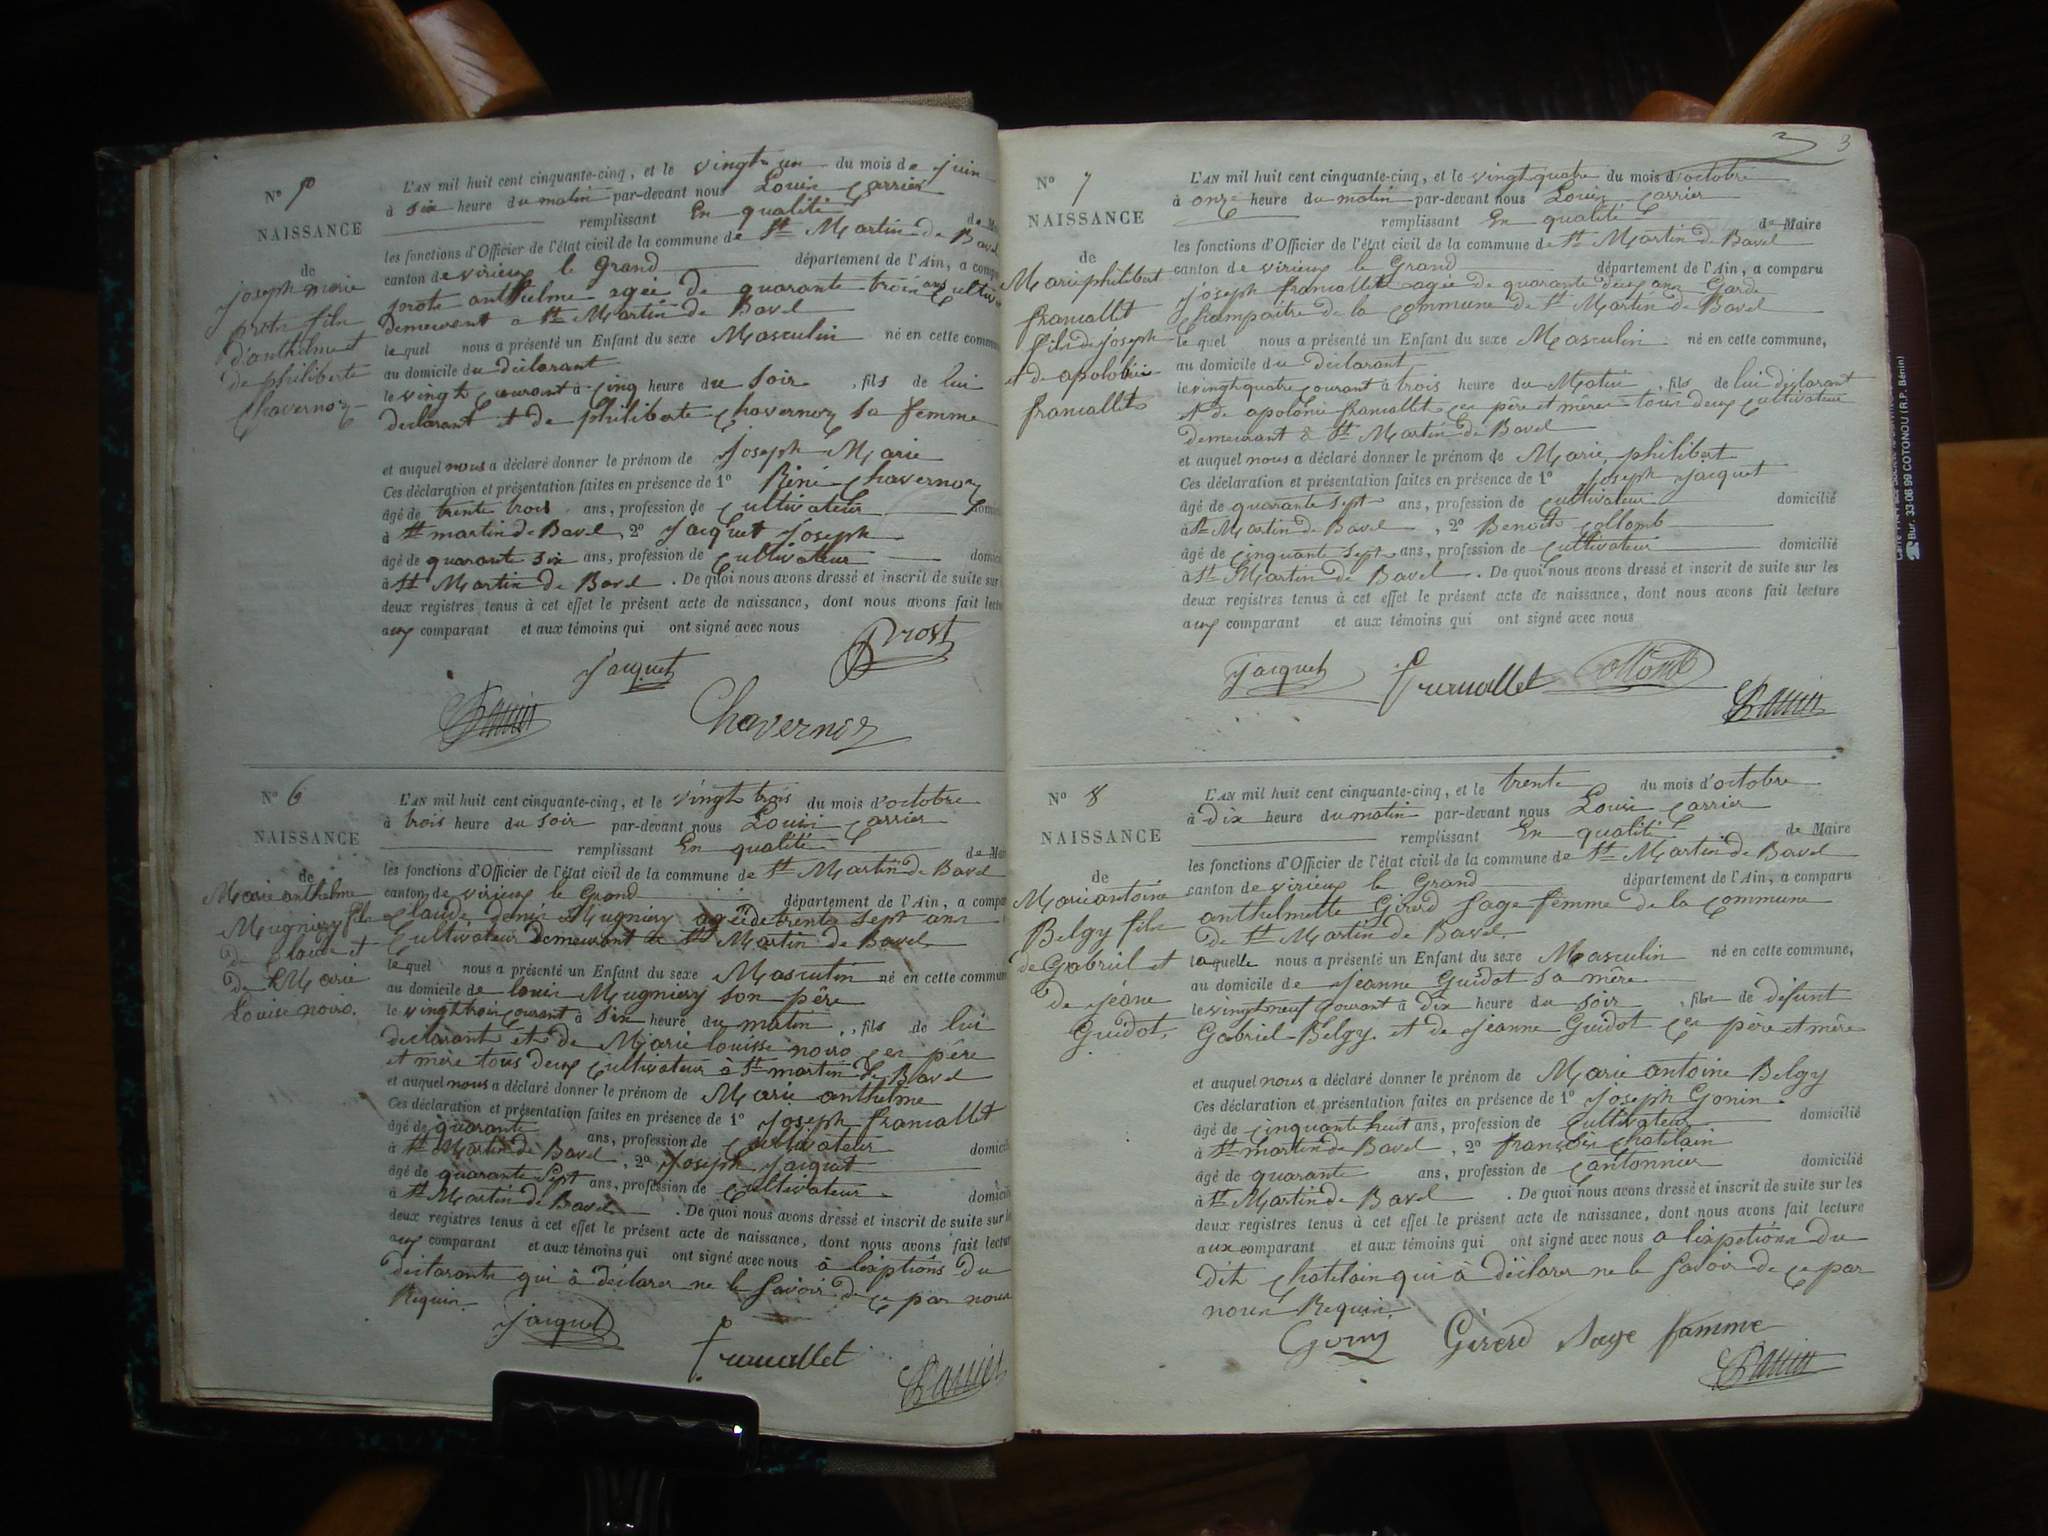 N° 5
NAISSANCE
de
joseph marie
prost fils
d'anthelme et
de philiberte
Chavernoz
L'AN mil huit cent cinquante-cinq, et le vingt un du mois de juin
à six heure du matin par-devant nous Louis Carrier
remplissant En qualité de Mai
les fonctions d'Officier de l'état civil de la commune de St Martin de Bavel
canton de virieux le Grand département de l'Ain, a compa
prost anthelme agée de quarante trois ans Cultiv
demeurent a St Martin de Bavel
lequel nous a présenté un Enfant du sexe Masculin né en cette commun
au domicile du déclarant
le vingt courant à cinq heure du soir, fils de lui
declarant et de philiberte Chavernoz sa femme
et auquel nous a déclaré donner le prénom de joseph Marie
Ces déclaration et présentation faites en présence de 1° Réné Chavernoz
âgé de trente trois ans, profession de cultivateur domici
à St martin de Bavel, 2° Jacquet Joseph
âgé de quarante six ans, profession de Cultivateur domici
à St Martin de Bavel. De quoi nous avons dressé et inscrit de suite sur
deux registres tenus à cet effet le présent acte de naissance, dont nous avons fait lectu
aux comparant et aux témoins qui ont signé avec nous
Prost
Jacquet
Carrier
Chavernoz
N° 6
NAISSANCE
de
Marie anthelme
Mugniery fils
de Claude et
de Marie
Louise noiro.
L'AN mil huit cent cinquante-cinq, et le vingt trois du mois d'octobre
à trois heure du soir par-devant nous Louis Carrier
remplissant En qualité de Mai
les fonctions d'Officier de l'état civil de la commune de St Martin de Bavel
canton de virieux le Grand département de l'Ain, a compa
Claude denis Mugniery agée de trente sept ans
Cultivateur demeurant a St Martin de Bavel
lequel nous a présenté un Enfant du sexe Masculin né en cette commun
au domicile de louis Mugniery son père
le vingt trois courant à six heure du matin, fils de lui
declarant et de Marie louisse noiro ces père
et mère tous deux Cultivateur à St martin de Bavel
et auquel nous a déclaré donner le prénom de Marie anthelme
Ces déclaration et présentation faites en présence de 1° Joseph francallet
âgé de quarante ans, profession de Cultivateur
à St Martin de Bavel, 2° Joseph Jacquet domicili
âgé de quarante Sept ans, profession de Cultivateur
à St Martin de Bavel domicili
. De quoi nous avons dressé et inscrit de suite sur l
deux registres tenus à cet effet le présent acte de naissance, dont nous avons fait lectur
aux comparant et aux témoins qui ont signé avec nous à l'exptions du
declarante qui à déclarer ne le Savoir de ce par nous
Requin.
Jacquet
francallet
Carrier
3
N° 7
NAISSANCE
de
Marie philibert
francallet
fils de joseph
et de apolonie
francallet
L'AN mil huit cent cinquante-cinq, et le vingt quatre du mois d'octobre
à onze heure du matin par-devant nous Louis Carrier
remplissant En qualité de Maire
les fonctions d'Officier de l'état civil de la commune de St Martin de Bavel
canton de virieux le Grand département de l'Ain, a comparu
Joseph francallet agée de quarante deux ans Garde
Champaitre de la Commune de St Martin de Bavel
lequel nous a présenté un Enfant du sexe Masculin né en cette commune,
au domicile du déclarant
le vingt quatre courant à trois heure du Matin, fils de lui déclarant
et de apolonie francallet ces père et mère tous deux cultivateur
demeurant à St Martin de Bavel
et auquel nous a déclaré donner le prénom de Marie philibert
Ces déclaration et présentation faites en présence de 1° Joseph Jacquet
âgé de quarante sept ans, profession de Cultivateur domicilié
à St Martin de Bavel, 2° Benoît Collomb
âgé de cinquante sept ans, profession de Cultivateur domicilié
à St Martin de Bavel. De quoi nous avons dressé et inscrit de suite sur les
deux registres tenus à cet effet le présent acte de naissance, dont nous avons fait lecture
aux comparant et aux témoins qui ont signé avec nous
Jacquet francallet Collomb
Carrier
N° 8
NAISSANCE
de
Marie antoine
Belgy fils
de Gabriel et
de jéane
Guidot.
L'AN mil huit cent cinquante-cinq, et le trente du mois d'octobre
à Dix heure du matin par-devant nous Louis Carrier
remplissant En qualité de Maire
les fonctions d'Officier de l'état civil de la commune de St Martin de Bavel
canton de virieux le Grand département de l'Ain, a comparu
anthelmette Girerd Sage femme de la Commune
de St Martin de Bavel
laquelle nous a présenté un Enfant du sexe Masculin né en cette commune,
au domicile de Jeanne Guidot sa mère
le vingt neuf courant à dix heure du soir, fils de défunt
Gabriel Belgy et de Jeanne Guidot ces père et mère
et auquel nous a déclaré donner le prénom de Marie antoine Belgy
Ces déclaration et présentation faites en présence de 1° Joseph Gonin
âgé de cinquante huit ans, profession de Cultivateur domicilié
à St martin de Bavel, 2° françois Chatelain
âgé de quarante ans, profession de Cantonnier domicilié
à St Martin de Bavel. De quoi nous avons dressé et inscrit de suite sur les
deux registres tenus à cet effet le présent acte de naissance, dont nous avons fait lecture
aux comparant et aux témoins qui ont signé avec nous a l'expetions du
dit Chatelain qui à déclarer ne le Savoir de ce par
nous Requin.
Gonin Girerd Sage famme
Carrier
Bur. 33 06 99 COTONOU (R.P. Bénin)